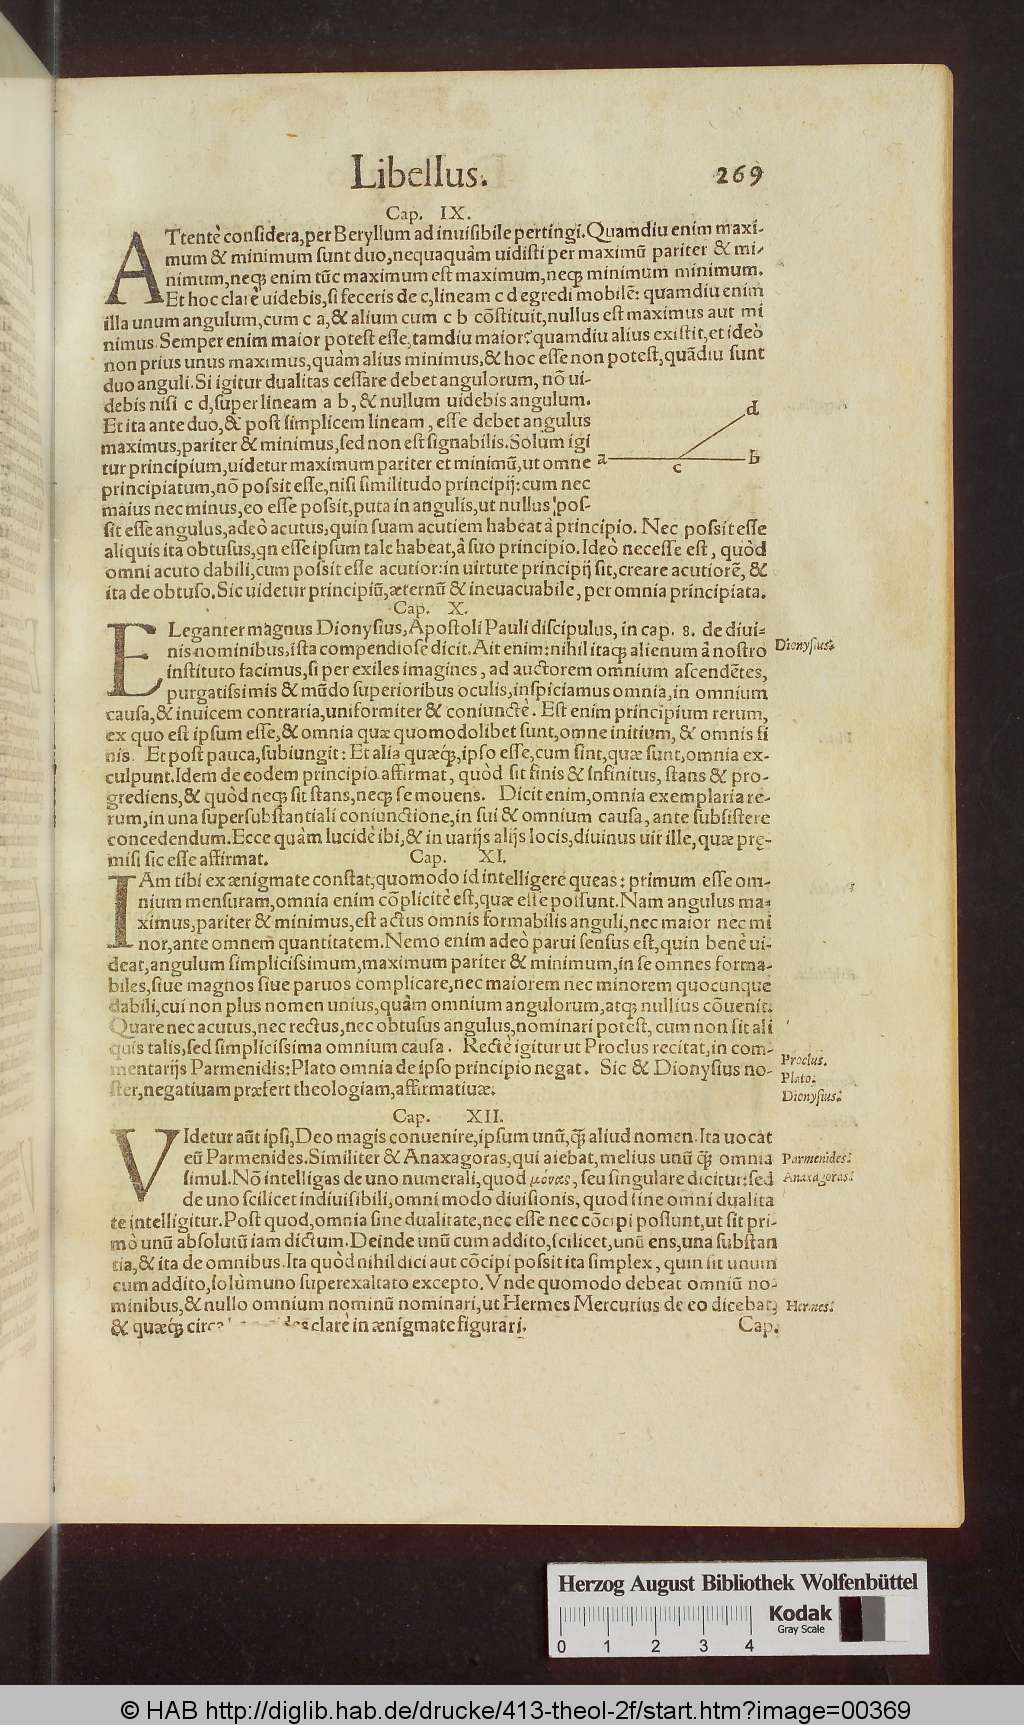 Libellus. 269
Cap. IX.
ATtentè considera, per Beryllum ad inuisibile pertingi. Quamdiu enim maxi-
mum & minimum sunt duo, nequaquàm uidisti per maximũ pariter & mi-
nimum, neq; enim tũc maximum est maximum, neq; minimum minimum.
Et hoc clarè uidebis, si feceris de c, lineam c d egredi mobilẽ: quamdiu enim
illa unum angulum, cum c a, & alium cum c b cõstituit, nullus est maximus aut mi
nimus. Semper enim maior potest esse, tamdiu maior? quamdiu alius existit, et ideò
non prius unus maximus, quàm alius minimus, & hoc esse non potest, quãdiu sunt
duo anguli. Si igitur dualitas cessare debet angulorum, nõ ui-
debis nisi c d, super lineam a b, & nullum uidebis angulum.
Et ita ante duo, & post simplicem lineam, esse debet angulus
maximus, pariter & minimus, sed non est signabilis. Solùm igi
tur principium, uidetur maximum pariter et minimũ, ut omne
principiatum, nõ possit esse, nisi similitudo principij: cum nec
maius nec minus, eo esse possit, puta in angulis, ut nullus pos-
d
a
c
b
sit esse angulus, adeò acutus, quin suam acutiem habeat à principio. Nec possit esse
aliquis ita obtusus, qn esse ipsum tale habeat, à suo principio. Ideò necesse est, quòd
omni acuto dabili, cum possit esse acutior: in uirtute principij sit, creare acutiorẽ, &
ita de obtuso. Sic uidetur principiũ, æternũ & ineuacuabile, per omnia principiata.
Cap. X.
ELeganter magnus Dionysius, Apostoli Pauli discipulus, in cap. 8. de diui-
nis nominibus, ista compendiosè dicit. Ait enim: nihil itaq; alienum à nostro
instituto facimus, si per exiles imagines, ad auctorem omnium ascendẽtes,
purgatissimis & mũdo superioribus oculis, inspiciamus omnia, in omnium
causa, & inuicem contraria, uniformiter & coniunctè. Est enim principium rerum,
ex quo est ipsum esse, & omnia quæ quomodolibet sunt, omne initium, & omnis fi
nis. Et post pauca, subiungit: Et alia quæq;, ipso esse, cum sint, quæ sunt, omnia ex-
culpunt. Idem de eodem principio affirmat, quòd sit finis & infinitus, stans & pro-
grediens, & quòd neq; sit stans, neq; se mouens. Dicit enim, omnia exemplaria re-
rum, in una supersubstantiali coniunctione, in sui & omnium causa, ante subsistere
concedendum. Ecce quàm lucidè ibi, & in uarijs alijs locis, diuinus uir ille, quæ prę-
misi sic esse affirmat.
Dionysius.
Cap. XI.
IAm tibi ex ænigmate constat, quomodo id intelligere queas: primum esse om-
nium mensuram, omnia enim cõplicitè est, quæ esse possunt. Nam angulus ma-
ximus, pariter & minimus, est actus omnis formabilis anguli, nec maior nec mi
nor, ante omnem quantitatem. Nemo enim adeò parui sensus est, quin benè ui-
deat, angulum simplicissimum, maximum pariter & minimum, in se omnes forma-
biles, siue magnos siue paruos complicare, nec maiorem nec minorem quocunque
dabili, cui non plus nomen unius, quàm omnium angulorum, atq; nullius cõuenit.
Quare nec acutus, nec rectus, nec obtusus angulus, nominari potest, cum non sit ali
quis talis, sed simplicissima omnium causa. Rectè igitur ut Proclus recitat, in com-
mentarijs Parmenidis: Plato omnia de ipso principio negat. Sic & Dionysius no-
ster, negatiuam præfert theologiam, affirmatiuæ.
Proclus.
Plato.
Dionysius.
Cap. XII.
VIdetur aũt ipsi, Deo magis conuenire, ipsum unũ, q̃ aliud nomen. Ita uocat
eũ Parmenides. Similiter & Anaxagoras, qui aiebat, melius unũ q̃ omnia
simul. Nõ intelligas de uno numerali, quod μόνας, seu singulare dicitur: sed
de uno scilicet indiuisibili, omni modo diuisionis, quod sine omni dualita
te intelligitur. Post quod, omnia sine dualitate, nec esse nec cõcipi possunt, ut sit pri-
mò unũ absolutũ iam dictum. Deinde unũ cum addito, scilicet, unũ ens, una substan
tia, & ita de omnibus. Ita quòd nihil dici aut cõcipi possit ita simplex, quin sit unum
cum addito, solùm uno superexaltato excepto. Vnde quomodo debeat omniũ no-
minibus, & nullo omnium nominũ nominari, ut Hermes Mercurius de eo dicebat;
& quæq; circa clarè in ænigmate figurari.
Parmenides.
Anaxagoras.
Hermes.
Cap.
Herzog August Bibliothek Wolfenbüttel
0 1 2 3 4
Kodak
Gray Scale
© HAB http://diglib.hab.de/drucke/413-theol-2f/start.htm?image=00369